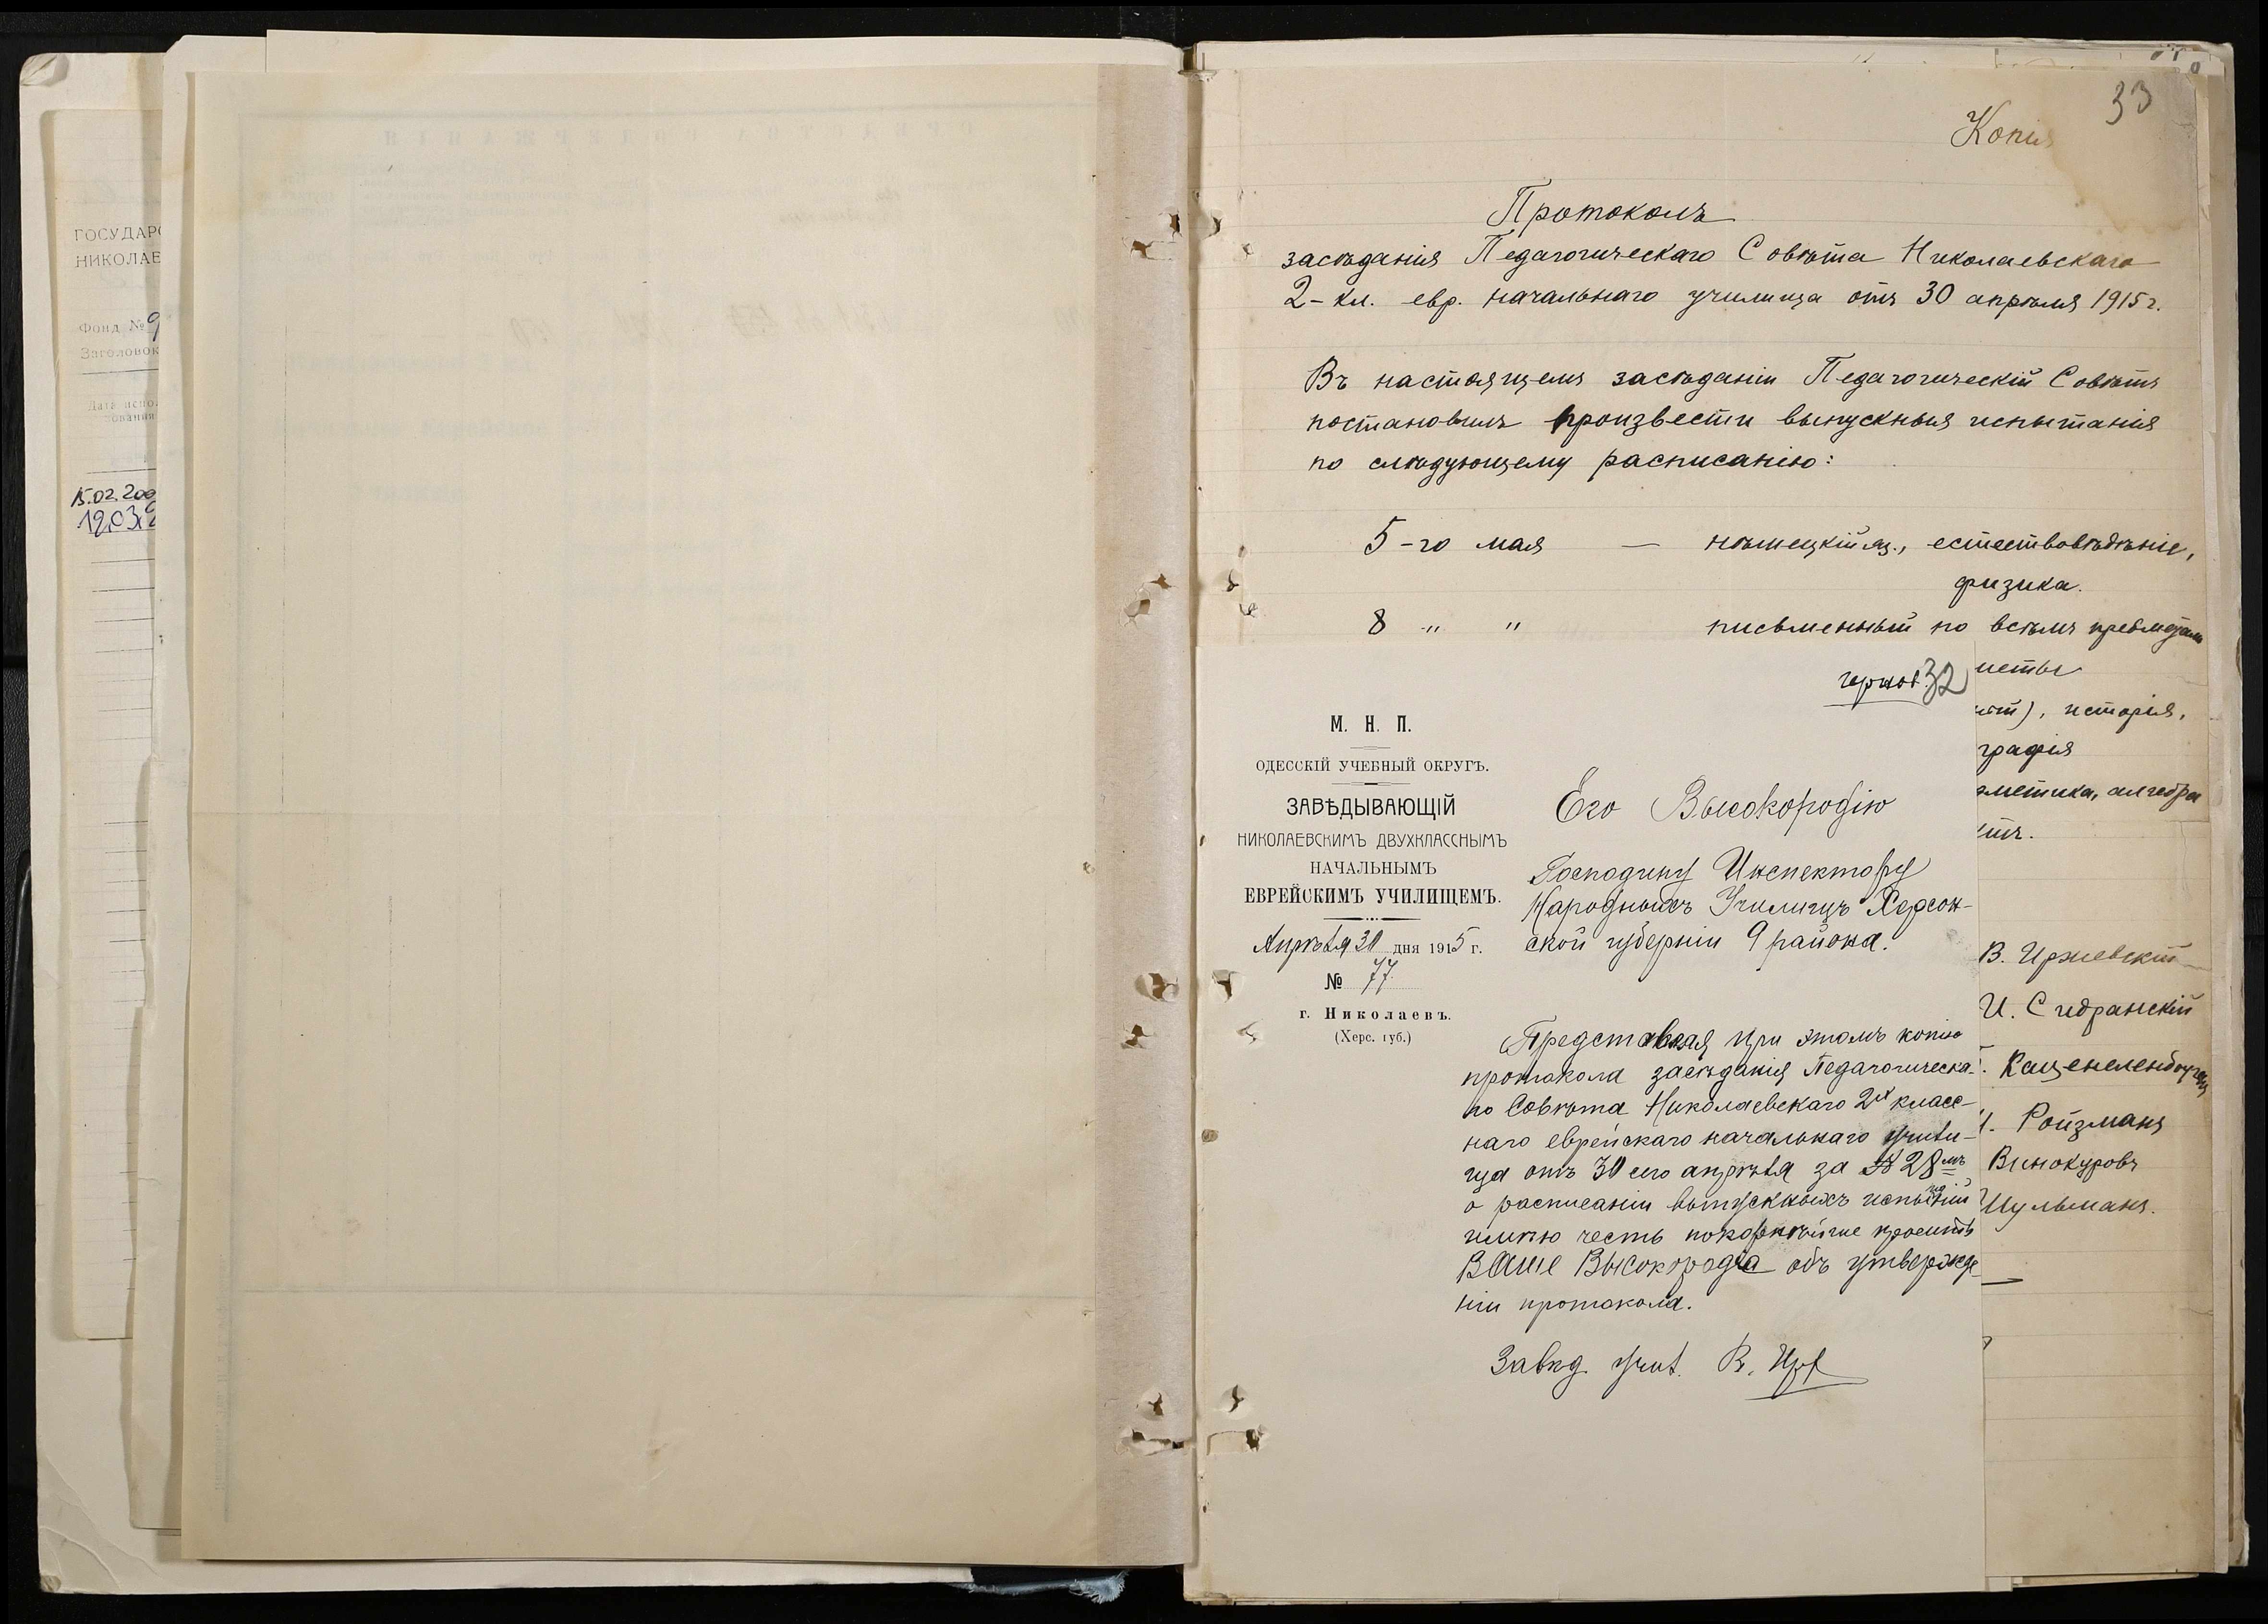 ГОСУДАР
НИКОЛАЕ
Фонд № 9
Заголовок
Дата испо
зования
15.02.200
19.03.2
33
Копія
Протоколъ
засѣданія Педагогическаго Совѣта Николаевскаго
2-кл. евр. начальнаго училища отъ 30 апрѣля 1915 г.
Въ настоящемъ засѣданіи Педагогическій Совѣтъ
постановилъ произвести выпускныя испытанія
по слѣдующему расписанію:
5-го мая — нѣмецкій яз., естествовѣдѣніе,
физика.
8 " " письменный по всѣмъ предметамъ
меты
), исторія,
графія
метика, алгебра
В. Иржевскій
И. Сидранскій
Каценеленбогенъ
Ройзманъ
Винокуровъ
Шульманъ.
чернов. 32
М. Н. П.
ОДЕССКІЙ УЧЕБНЫЙ ОКРУГЪ.
ЗАВѢДЫВАЮЩІЙ
НИКОЛАЕВСКИМЪ ДВУХКЛАССНЫМЪ
НАЧАЛЬНЫМЪ
ЕВРЕЙСКИМЪ УЧИЛИЩЕМЪ.
Апрѣля 30 дня 1915 г.
№ 77
г. Николаевъ.
(Херс. губ.)
Его Высокородію
Господину Инспектору
Народныхъ Училищъ Херсон-
ской губерніи 9 района.
Представляя при этомъ копію
протокола засѣданія Педагогическа-
го Совѣта Николаевскаго 2х класс-
наго еврейскаго начальнаго учили-
ща отъ 30 сего апрѣля за № 28мъ
о расписаніи выпускныхъ испытаній
имѣю честь покорнѣйше просить
Ваше Высокородіе объ утвержде-
ніи протокола.
Завѣд. учил. В. Ирж